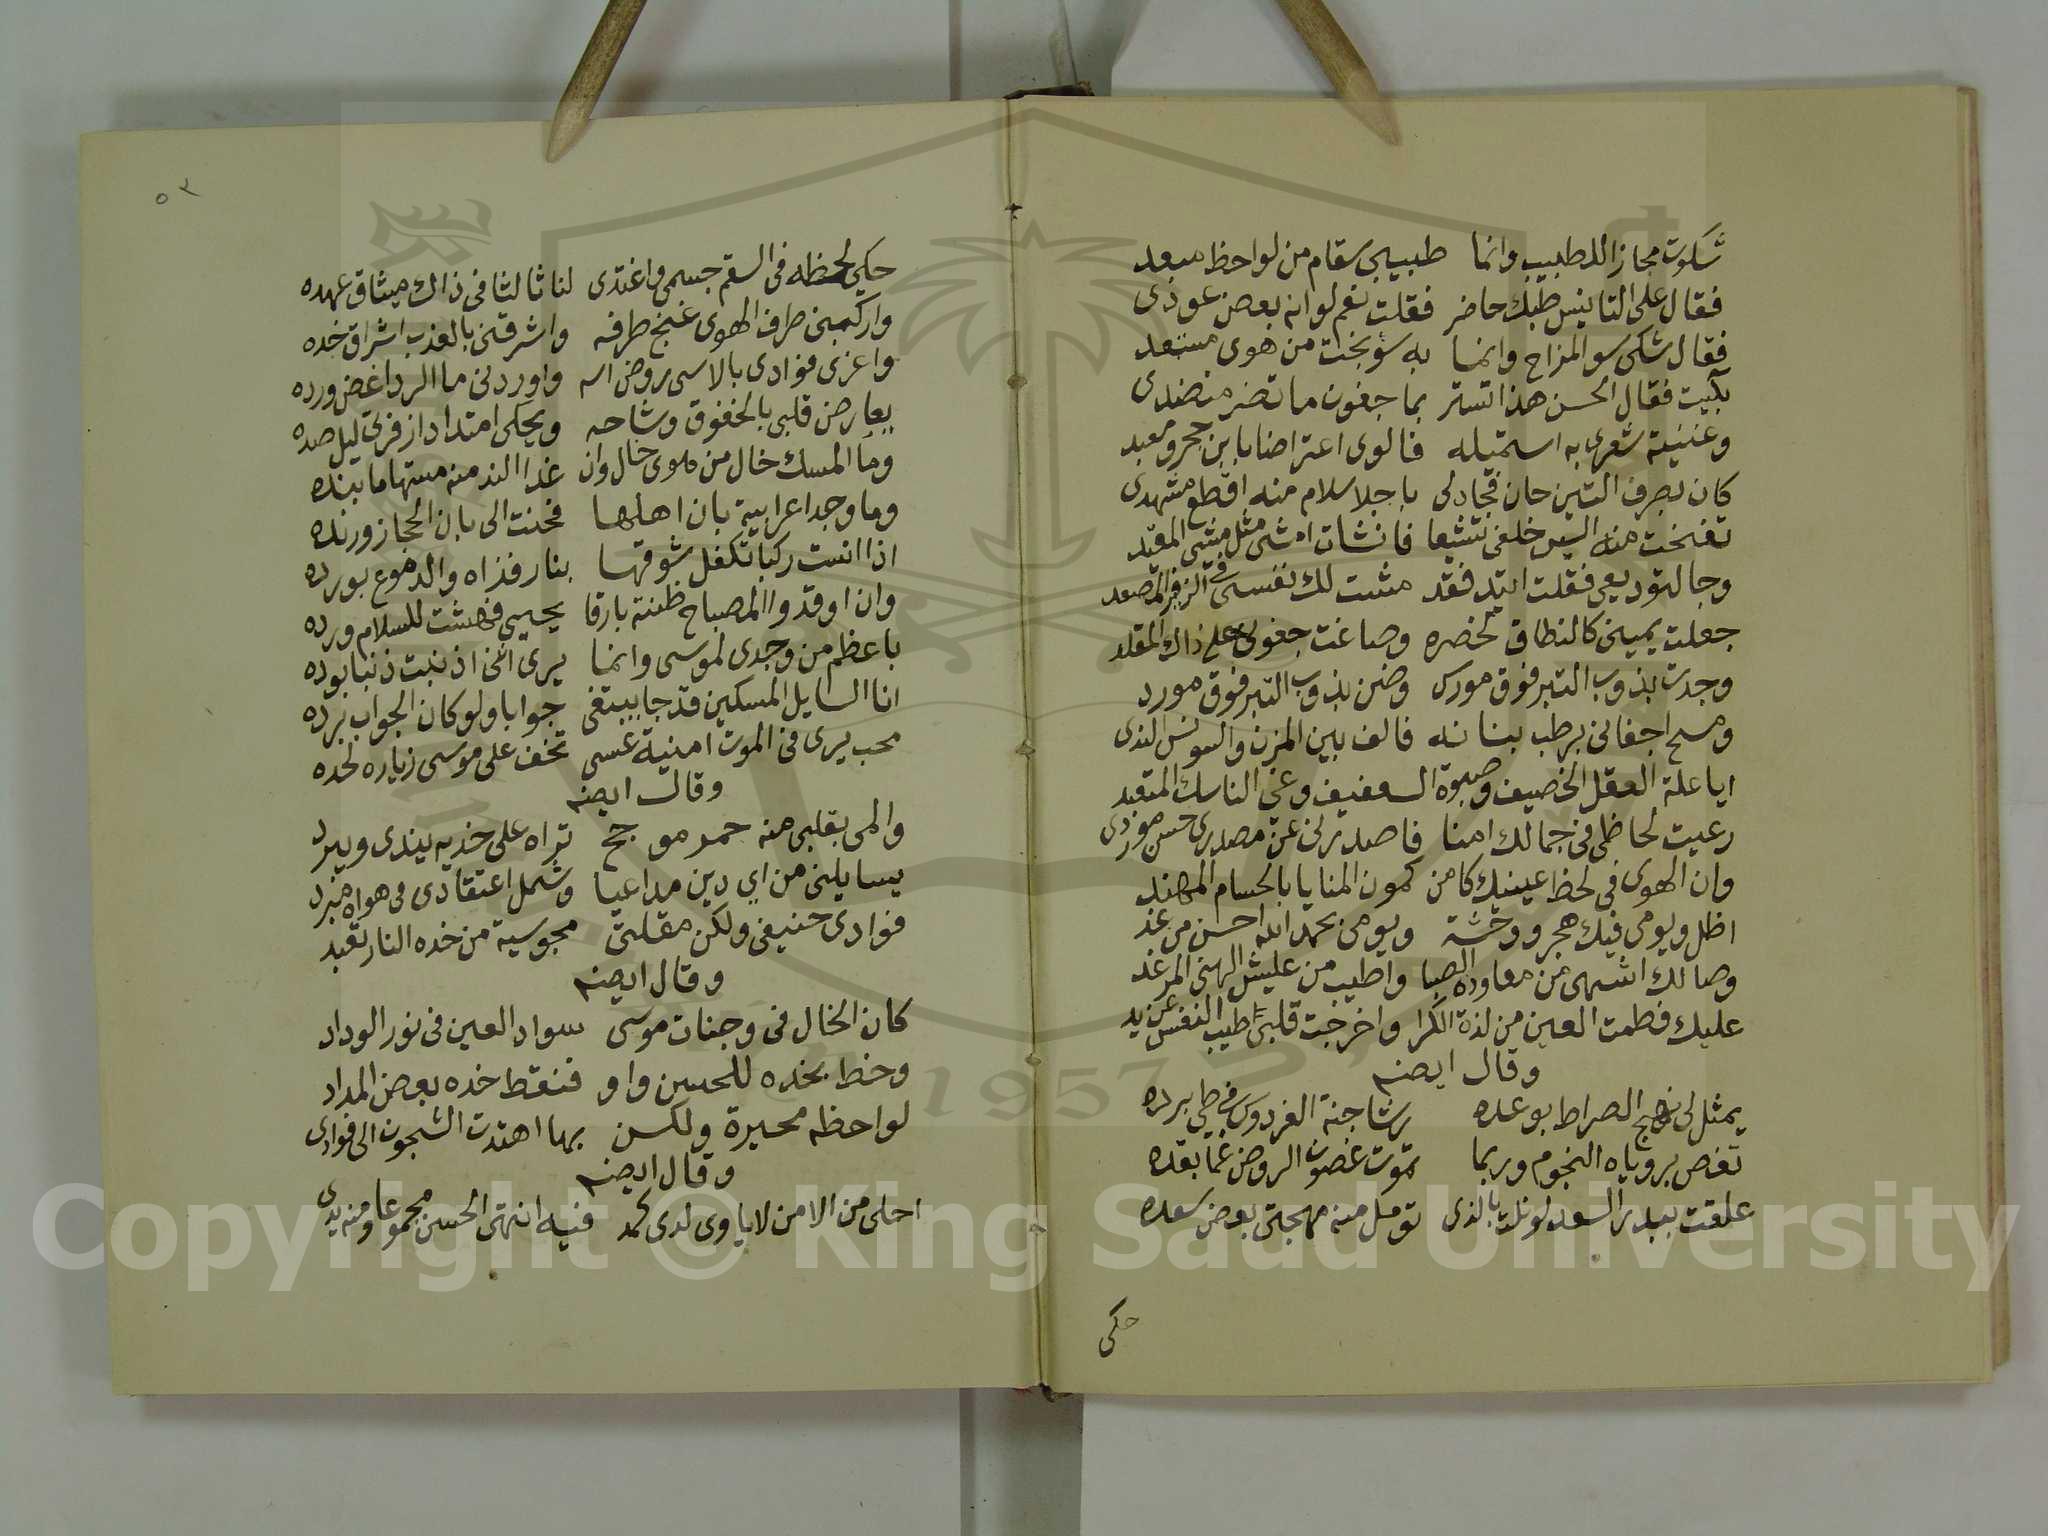 شكوت مجازا للطبيب وانما طبيبي سقام من لواحظ مبعد
فقال على التانيس طبك حاضر فقلت نعم لو انه بعض عوذى
فقال شكى سو المزاج وانما به سؤ بخت من هوى مسعد
بكيت فقال الحسن هذا اتستر بما جفون ما تضر منضدى
وغنيته شعرى به استميله فالوى اعتراضا بابن حجر ومعبد
كان بصرف البين حان فجادلى باجلا سلام منه افظع مشهدى
تغنجت منه السير خلفى تشيعا فانشات امشى مثل مشى المقيد
وجا لتوديعى فقلت اتيد فقد مشت لك نفسى فى الزفير المصعد
جعلت يمينى كالنطاق لخصره وصاغت جفونى على ذاك المقلد
وجدت بذوب التبر فوق مورس وضن بذوب التبر فوق مورد
ومسح اجفانى برطب بنانه فالف بين المزن والسوسن الندى
ايا علة العقل الخصيف وصبوة العفيف وغي الناسك المتعبد
رعيت لحاظى فى جمالك امنا فاصدرنى عن مصدرى حسن موردى
وان الهوى فى لحظ عينيك كامن كمون المنايا بالحسام المهند
اظل ويومى فيك هجر ووحشة ويومى بحمد الله احسن من غد
وصالك اشهى من معاودة الصبا واطيب من عليش الهنى المرغد
عليك فطمت العين من لذة الكرا واخرجت قلبى اطيب النفس عن يد
وقال ايضه
يمثل لى نهج الصراط بوعده رشا جنة الفردوس فى طى برده
تغص برؤياه النجوم وربما تموت غصون الروض غما بقده
علقت ببدر السعد لو نلت بالذى تومل منه مهجتى بعض سعده
حكى
٥٢
حكى لحظه فى السقم جسمى واغتدى لنا ثالثا فى ذاك ميثاق عهده
واركبنى طرف الهوى غنج طرفه واشرقنى بالعذب اشراق خده
واغرى فوادى بالاسى روض اسه واوردنى ما الردا غض ورده
يعارض قلبى بالخفوق وشاحه ويحكى امتدادا زفرتى ليل صده
وما المسك خال من هوى خال وان غدا الند منه مستهاما بنده
وما وجد اعرابية بان اهلها فحنت الى بان الحجاز ورنده
اذا انست ركبا تكفل شوقها بنار قراه والدموع بورده
وان اوقدوا المصباح ظنته بارقا يحيى فهشت للسلام ورده
باعظم من وجدى لموسى وانما يرى اننى اذنبت ذنبا بوده
انا السايل المسكين قد جا يبتغى جوابا ولو كان الجواب برده
محب يرى فى الموت امنية عسى تخف على موسى زياره لحده
وقال ايضه
والمى بقلبى منه جمر موجج تراه على خديه يندى ويبرد
يسايلنى من اي دين مداعبا وشمل اعتقادى فى هواه مبرد
فوادى حنيفى ولكن مقلتى مجوسية من خده النار تعبد
وقال ايضه
كان الخال فى وجنات موسى سواد العين فى نور الوداد
وخط بخده للحسن واو فنقط خده بعض المداد
لواحظه محيرة ولكن بها اهتدت الشجون الى فوادى
وقال ايضه
احلى من الامن لا ياوى لدى كمد فنيه انتهى الحسن مجموعا ومنه يدى
Copyright © King Saud University
1957